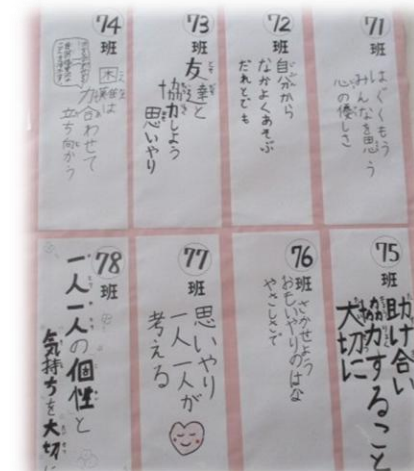 71班
はぐくもう
みんなを思う
心の優しさ
72班
自分から
なかよくあそぶ
だれとでも
73班
友達と
協力しよう
思いやり
74班
困難は
力合わせて
立ち向かう
75班
助け合い
協力すること
大切に
76班
さかせよう
おもいやりのはな
やさしさで
77班
思いやり
一人一人が
考える
78班
一人一人の個性と
気持ちを大切